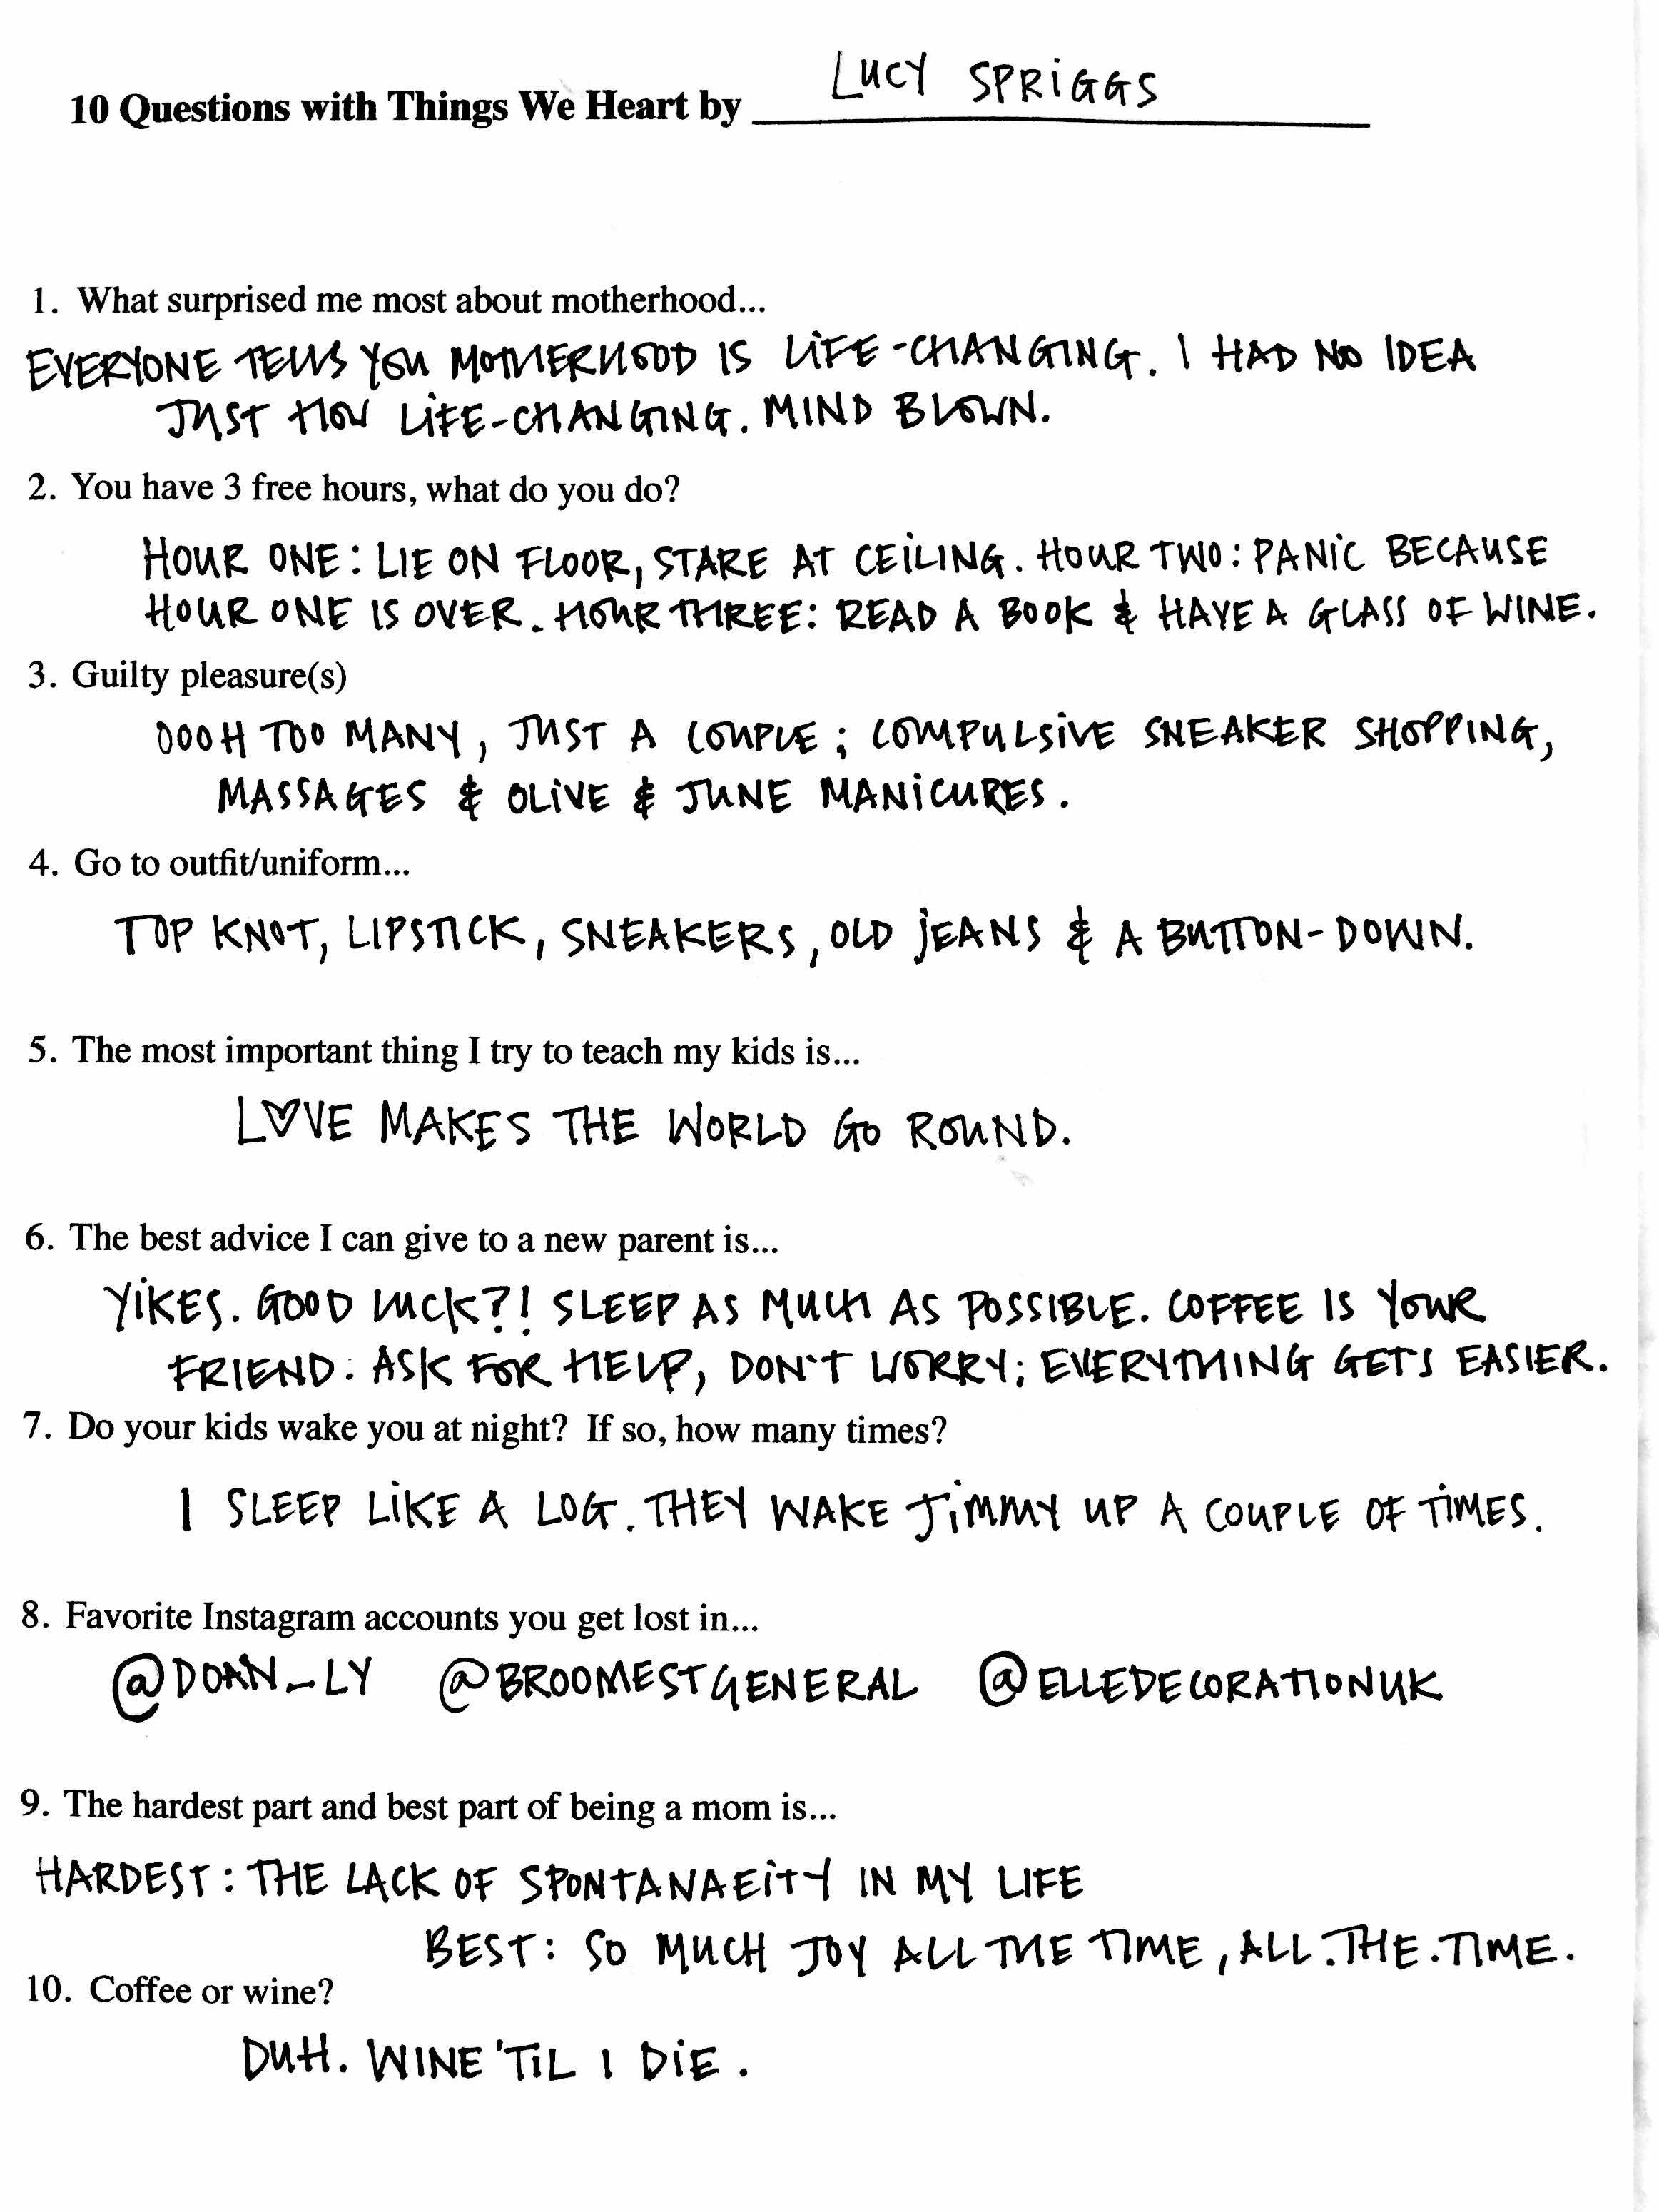 10 Questions with Things We Heart by LUCY SPRIGGS
1. What surprised me most about motherhood...
EVERYONE TELLS YOU MOTHERHOOD IS LIFE-CHANGING. I HAD NO IDEA
JUST HOW LIFE-CHANGING. MIND BLOWN.
2. You have 3 free hours, what do you do?
HOUR ONE: LIE ON FLOOR, STARE AT CEILING. HOUR TWO: PANIC BECAUSE
HOUR ONE IS OVER. HOUR THREE: READ A BOOK & HAVE A GLASS OF WINE.
3. Guilty pleasure(s)
OOOH TOO MANY, JUST A COUPLE; COMPULSIVE SNEAKER SHOPPING,
MASSAGES & OLIVE & JUNE MANICURES.
4. Go to outfit/uniform...
TOP KNOT, LIPSTICK, SNEAKERS, OLD JEANS & A BUTTON-DOWN.
5. The most important thing I try to teach my kids is...
L♡VE MAKES THE WORLD GO ROUND.
6. The best advice I can give to a new parent is...
YIKES. GOOD LUCK?! SLEEP AS MUCH AS POSSIBLE. COFFEE IS YOUR
FRIEND. ASK FOR HELP, DON'T WORRY; EVERYTHING GETS EASIER.
7. Do your kids wake you at night? If so, how many times?
I SLEEP LIKE A LOG. THEY WAKE JIMMY UP A COUPLE OF TIMES.
8. Favorite Instagram accounts you get lost in...
@DOAN_LY @BROOMESTGENERAL @ELLEDECORATIONUK
9. The hardest part and best part of being a mom is...
HARDEST: THE LACK OF SPONTANAEITY IN MY LIFE
BEST: SO MUCH JOY ALL THE TIME, ALL.THE.TIME.
10. Coffee or wine?
DUH. WINE 'TIL I DIE.